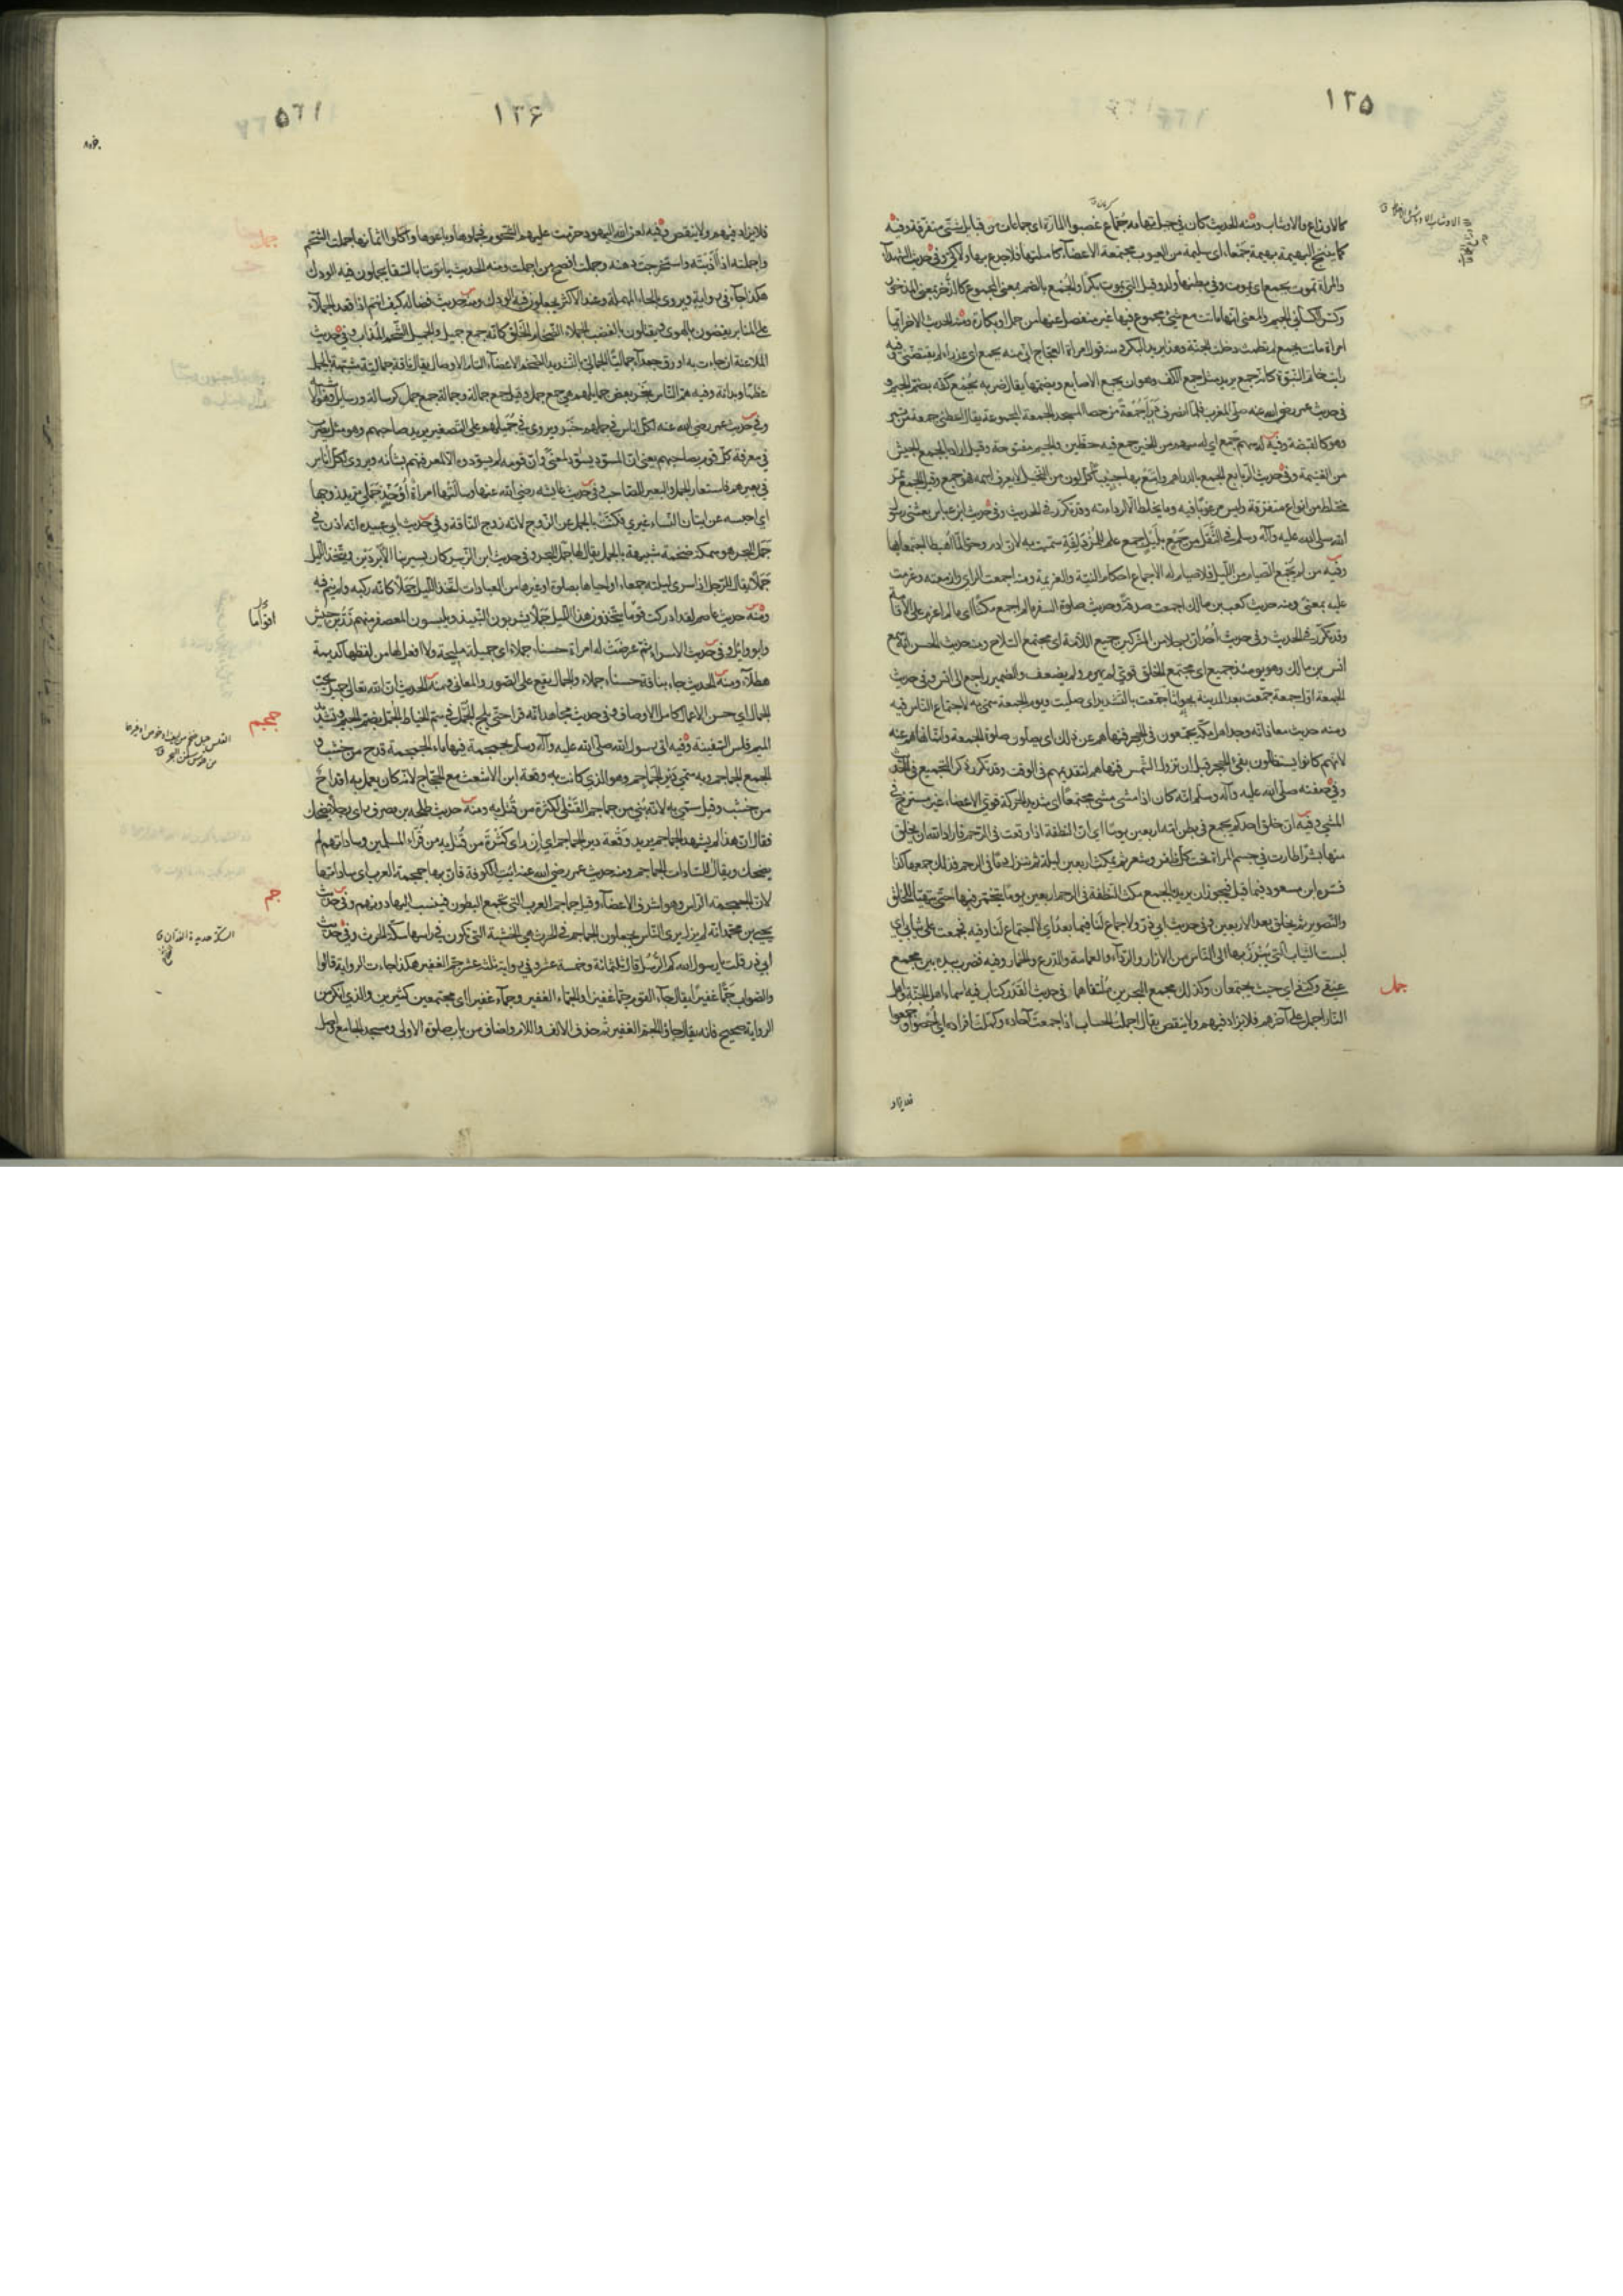 ١٢٥
كالاوزاع والاوشاب ومنه الحديث كان في جبل تهامة جُمّاع غصبوا المارّة اى جماعات من قبايل شتّى متفرقة وفيه
كما تنتج البهيمة بهيمة جمعاء اى سليمة من العيوب مجتمعة الاعضاء كاملتها فلا جدع بها ولا كيّ وفي حديث الشهداء
والمرأة تموت بجمع اى تموت وفي بطنها ولد وقيل التي تموت بكرا والجمع بالضم بمعنى المجموع كالذخر بمعنى المذخور
وكسر الكسائي الجيم والمعنى انها ماتت مع شيء مجموع فيها غير منفصل عنها من حمل او بكارة ومنه الحديث الاخر ايما
امرأة ماتت بجمع لم تطمث دخلت الجنة وهذا يريد به البكر ومنه قول امرأة العجاج اني منه بجمع اى عذراء لم يفتضّني وفيه
رايت خاتم النبوّة كانه جمع يريد مثل جمع الكف وهو ان يجمع الاصابع ويضمها يقال ضربه بجمع كفه بضم الجيم و
في حديث عمر رضي الله عنه صلى المغرب فلما انصرف درأ جمعة من حصا المسجد الجمعة المجموعة يقال اعطني جمعة من تمر
وهو كالقبضة وفيه له سهم جمع اى له سهم من الخير جمع فيه حظين والجيم مفتوحة وقيل اراد بالجمع الجيش
من الغنيمة وفي حديث الربا بع الجمع بالدراهم وابتع بها جنيبا كل لون من النخيل لا يعرف اسمه فهو جمع وقيل الجمع تمر
مختلط من انواع متفرقة وليس مرغوبا فيه وما يخلط الا لرداءته وقد تكرر في الحديث وفي حديث ابن عباس بعثني رسول
الله صلى الله عليه وآله وسلم في الثقل من جمع بليل جمع علم للمزدلفة سميت به لان ادم وحوا لما اهبطا اجتمعا بها
وفيه من لم يجمع الصيام من الليل فلا صيام له الاجماع احكام النية والعزيمة ومنه اجمعت الراي وازمعته وعزمت
عليه بمعنى ومنه حديث كعب بن مالك اجمعت صدقه وحديث صلوة السفر ما لم اجمع مكثا اى ما لم اعزم على الاقامة
وقد تكرر في الحديث وفي حديث أحد ان رجلا من المشركين جميع اللأمة اى مجتمع السلاح ومنه حديث الحسن انه سمع
انس بن مالك وهو يومئذ جميع اى مجتمع الخلق قوي لم يهرم ولم يضعف والضمير راجع الى انس وفي حديث
الجمعة اول جمعة جمعت بعد المدينة بجواثا جمعت بالتشديد اى صليت ويوم الجمعة سمي به لاجتماع الناس فيه
ومنه حديث معاذ انه وجد اهل مكة يجمعون في الحجر فنهاهم عن ذلك اى يصلون صلوة الجمعة وانما نهاهم عنه
لانهم كانوا يستظلون بفيء الحجر قبل ان تزول الشمس فنهاهم لتقديمهم في الوقت وقد تكرر ذكر التجميع في الحديث
وفي صفته صلى الله عليه وآله وسلم انه كان اذا مشى مشى مجتمعا اى شديد الحركة قوي الاعضاء غير مسترخ في
المشي وفيه ان خلق احدكم يجمع في بطن امه اربعين يوما اى ان النطفة اذا وقعت في الرحم فاراد الله ان يخلق
منها بشرا طارت في جسم المرأة تحت كل ظفر وشعر ثم تمكث اربعين ليلة ثم تنزل دما في الرحم فذلك جمعها كذا
فسره ابن مسعود فيما قيل ويجوز ان يريد بالجمع مكث النطفة في الرحم اربعين يوما تتخمر فيها حتى تتهيأ للخلق
والتصوير ثم يخلق بعد الاربعين وفي حديث ابي ذر ولا جماع لنا فيما بعد اى لا اجتماع لنا وفيه فجمعت علي ثيابي اى
لبست الثياب التي نبرز بها الى الناس من الازار والرداء والعمامة والدرع والخمار وفيه فضرب بيده بين مجمع
عنقي وكتفي اى حيث يجتمعان وكذلك مجمع البحرين ملتقاهما في حديث القدر كتاب فيه اسماء اهل الجنة واهل
جمل
النار اجمل على آخرهم فلا يزاد فيهم ولا ينقص يقال اجملت الحساب اذا جمعت آحاده وكملت افراده اى احصوا وجمعوا
فلا يزاد
١٢۶
فلا يزاد فيهم ولا ينقص وفيه لعن الله اليهود حرمت عليهم الشحوم فجملوها وباعوها واكلوا اثمانها جملت الشحم
واجملته اذا اذبته واستخرجت دهنه وجملت افصح من اجملت ومنه الحديث ياتوننا بالسقاء يجملون فيه الودك
هكذا جاء في رواية ويروى بالحاء المهملة وعند الاكثر يجعلون فيه الودك ومنه حديث فضالة كيف انتم اذا قعد الجملاء
على المنابر يقضون بالهوى ويقتلون بالغضب الجملاء الضخام الخلق كانه جمع جميل والجميل الشحم المذاب وفي حديث
الملاعنة ان جاءت به اورق جعدا جماليا الجمالي بالتشديد الضخم الاعضاء التام الاوصال يقال ناقة جمالية مشبهة بالجمل
عظما وبدانة وفيه هم الناس بنحر بعض جمايلهم هي جمع جمل وقيل جمع جمالة وجمالة جمع جمل كرسالة ورسايل
وفي حديث عمر رضي الله عنه لكل اناس في جملهم خبر ويروى في جميلهم على التصغير يريد صاحبهم وهو مثل يضرب
في معرفة كل قوم بصاحبهم يعني ان المسود يسود لمعنى وان قومه لم يسودوه الا لمعرفتهم بشانه ويروى لكل اناس
في بعيرهم فاستعار الجمل والبعير للصاحب وفي حديث عايشه رضي الله عنها وسالتها امرأة أأوخذ جملي تريد زوجها
اى احبسه عن اتيان النساء غيري فكنت بالجمل عن الزوج لانه زوج الناقة وفي حديث ابي عبيدة انه اذن في
جمل البحر هو سمكة ضخمة شبيهة بالجمل يقال لها جمل البحر وفي حديث ابن الزبير كان يسير بنا الابردين ويتخذ الليل
جملا يقال للرجل اذا سرى ليلته جمعاء او احياها بصلوة او غيرها من العبادات اتخذ الليل جملا كانه ركبه ولم ينم فيه
ومنه حديث عاصم لقد ادركت قوما يتخذون هذا الليل جملا يشربون النبيذ ويلبسون المعصفر منهم زر بن حبيش
وابو وائل وفي حديث الاسراء ثم عرضت له امرأة حسناء جملاء اى جميلة مليحة ولا افعل لها من لفظها كديمة
هطلاء ومنه الحديث جاء بناقة حسناء جملاء والجمال يقع على الصور والمعاني ومنه الحديث ان الله تعالى جميل يحب
الجمال اى حسن الاعمال كامل الاوصاف وفي حديث مجاهد انه قرا حتى يلج الجمل في سم الخياط الجمل بضم الجيم وتشديد
جمجم
الميم قلس السفينة وفيه اتي رسول الله صلى الله عليه وآله وسلم بجمجمة فيها ماء الجمجمة قدح من خشب و
الجمع الجماجم وبه سمي دير الجماجم وهو الذي كانت به وقعة ابن الاشعث مع الحجاج لانه كان يعمل به اقداح
من خشب وقيل سمي به لانه بني من جماجم القتلى لكثرة من قتل به ومنه حديث طلحة بن مصرف راى رجلا يضحك
فقال ان هذا لم يشهد الجماجم يريد وقعة دير الجماجم اى انه لو راى كثرة من قتل به من قراء المسلمين وساداتهم لم
يضحك ويقال للسادات الجماجم ومنه حديث عمر رضي الله عنه ائت الكوفة فان بها جمجمة العرب اى ساداتها
لان الجمجمة الراس وهو اشرف الاعضاء وقيل جماجم العرب التي تجمع البطون فينسب اليها دونهم وفي حديث
يحيى بن محمد انه لم يزل يرى الناس يجعلون الجماجم في الحرث هي الخشبة التي تكون في راسها سكة الحرث وفي حديث
جم
ابي ذر قلت يا رسول الله كم الرسل قال ثلثمائة وخمسة عشر وفي رواية ثلثة عشر جم الغفير هكذا جاءت الرواية قالوا
والصواب جما غفيرا يقال جاء القوم جما غفيرا والجماء الغفير وجماء غفيرا اى مجتمعين كثيرين والذي انكر من
الرواية صحيح فانه يقال جاؤا الجم الغفير ثم حذف الالف واللام واضاف من باب صلوة الاولى ومسجد الجامع
السكة حديدة الفدان ق